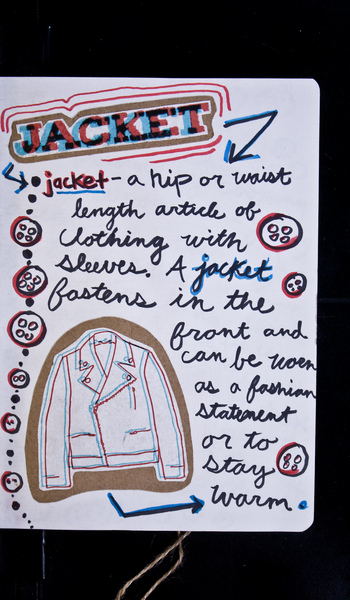 JACKET
jacket - a hip or waist
length article of
clothing with
sleeves. A jacket
fastens in the
front and
can be worn
as a fashion
statement
or to
stay
warm.